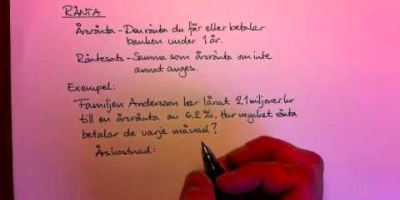 RÄNTA
Årsränta - Den ränta du får eller betalar
banken under 1 år.
Räntesats - Samma som årsränta om inte
annat anges.
Exempel:
Familjen Andersson har lånat 2,1 miljoner kr
till en årsränta av 6,2%. Hur mycket ränta
betalar de varje månad?
Årskostnad: